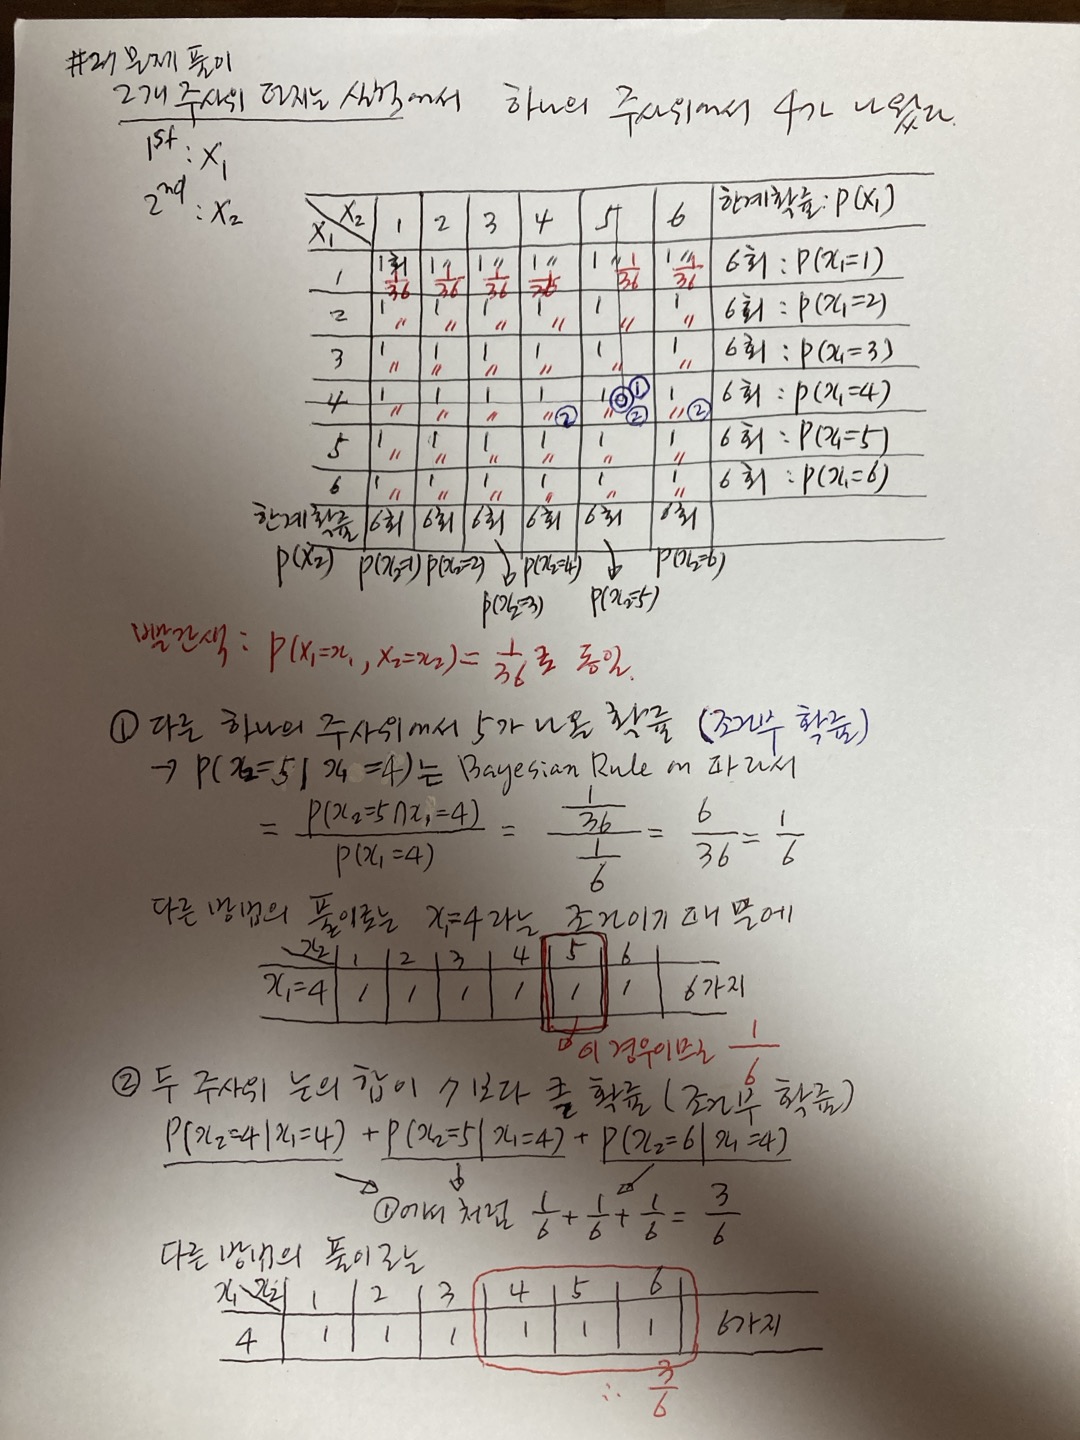 #27 문제 풀이
2개 주사위 던지는 실험에서 하나의 주사위에서 4가 나왔다.
1st : X₁
2nd : X₂
X₁ X₂ 1 2 3 4 5 6 한계확률: P(X₁)
1 1회 1/36 1〃 1/36 1〃 1/36 1〃 1/36 1〃 1/36 1〃 1/36 6회 : P(x₁=1)
2 1〃 1〃 1〃 1〃 1〃 1〃 6회 : P(x₁=2)
3 1〃 1〃 1〃 1〃 1〃 1〃 6회 : P(x₁=3)
4 1〃 1〃 1〃 1〃② 1〃①② 1〃② 6회 : P(x₁=4)
5 1〃 1〃 1〃 1〃 1〃 1〃 6회 : P(x₁=5)
6 1〃 1〃 1〃 1〃 1〃 1〃 6회 : P(x₁=6)
한계확률 6회 6회 6회 6회 6회 6회
P(X₂) P(x₂=1) P(x₂=2) P(x₂=3) P(x₂=4) P(x₂=5) P(x₂=6)
빨간색 : P(X₁=x₁, X₂=x₂) = 1/36로 동일.
① 다른 하나의 주사위에서 5가 나올 확률 (조건부 확률)
→ P(x₂=5 | x₁=4)는 Bayesian Rule에 따라서
= P(x₂=5∩x₁=4) / P(x₁=4) = (1/36) / (1/6) = 6/36 = 1/6
다른 방법의 풀이로는 x₁=4 라는 조건이기 때문에
x₂ 1 2 3 4 5 6
x₁=4 1 1 1 1 1 1 6가지
이 경우이므로 1/6
② 두 주사위 눈의 합이 7보다 클 확률 (조건부 확률)
P(x₂=4|x₁=4) + P(x₂=5|x₁=4) + P(x₂=6|x₁=4)
①에서 처럼 1/6 + 1/6 + 1/6 = 3/6
다른 방법의 풀이로는
x₁ x₂ 1 2 3 4 5 6
4 1 1 1 1 1 1 6가지
∴ 3/6